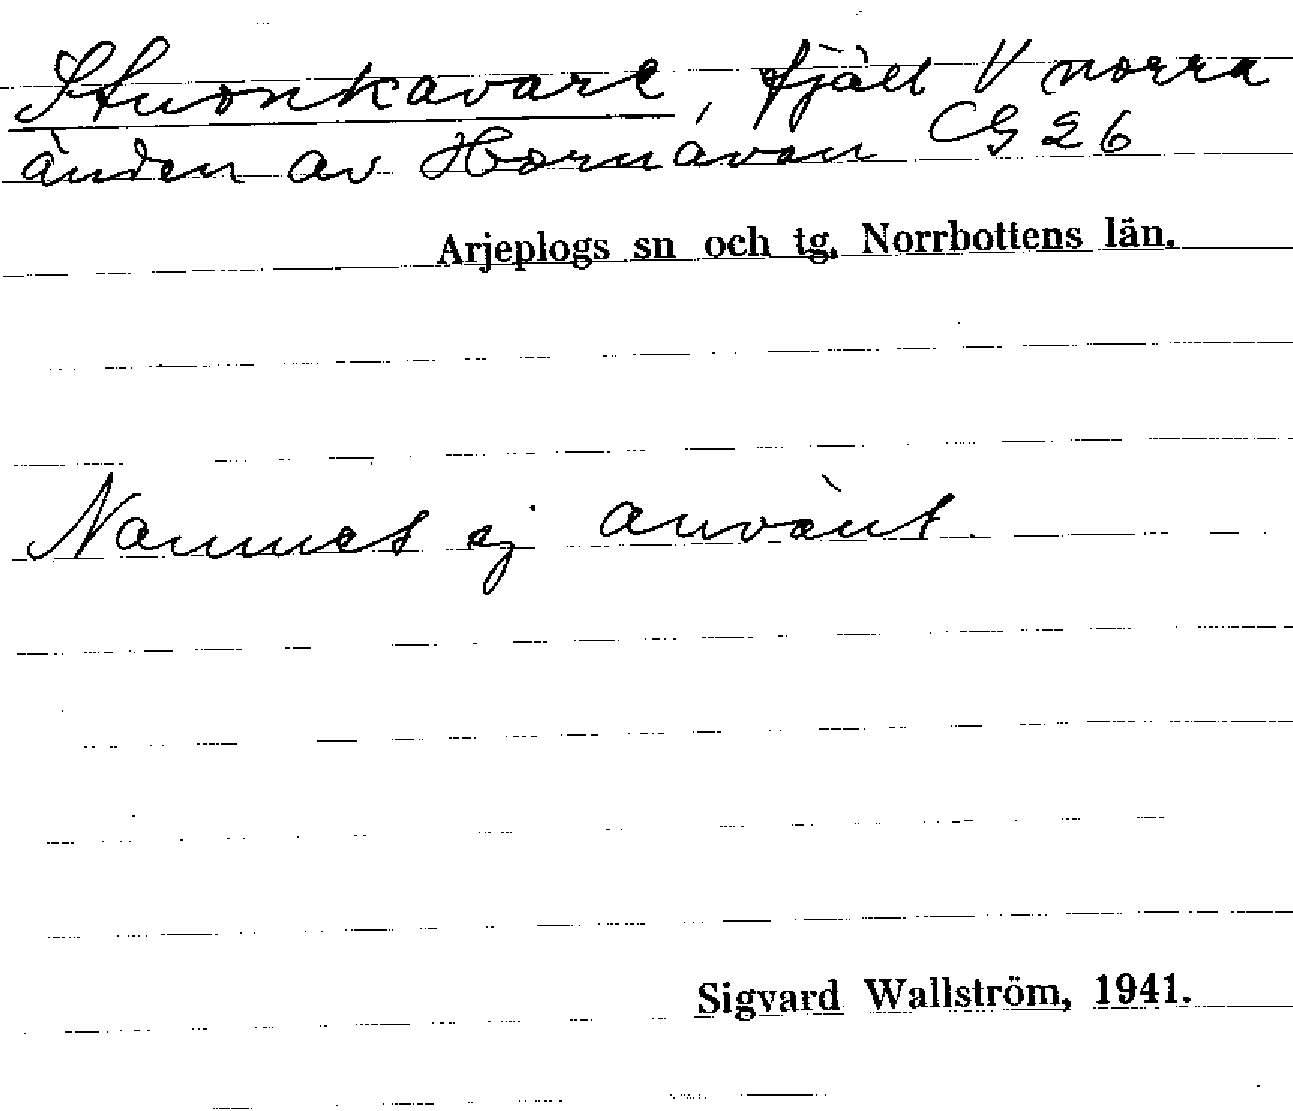 Stuorkavare, fjäll V norra
änden av Hornavan CG 26
Arjeplogs sn och tg. Norrbottens län.
Namnet ej använt.
Sigvard Wallström, 1941.